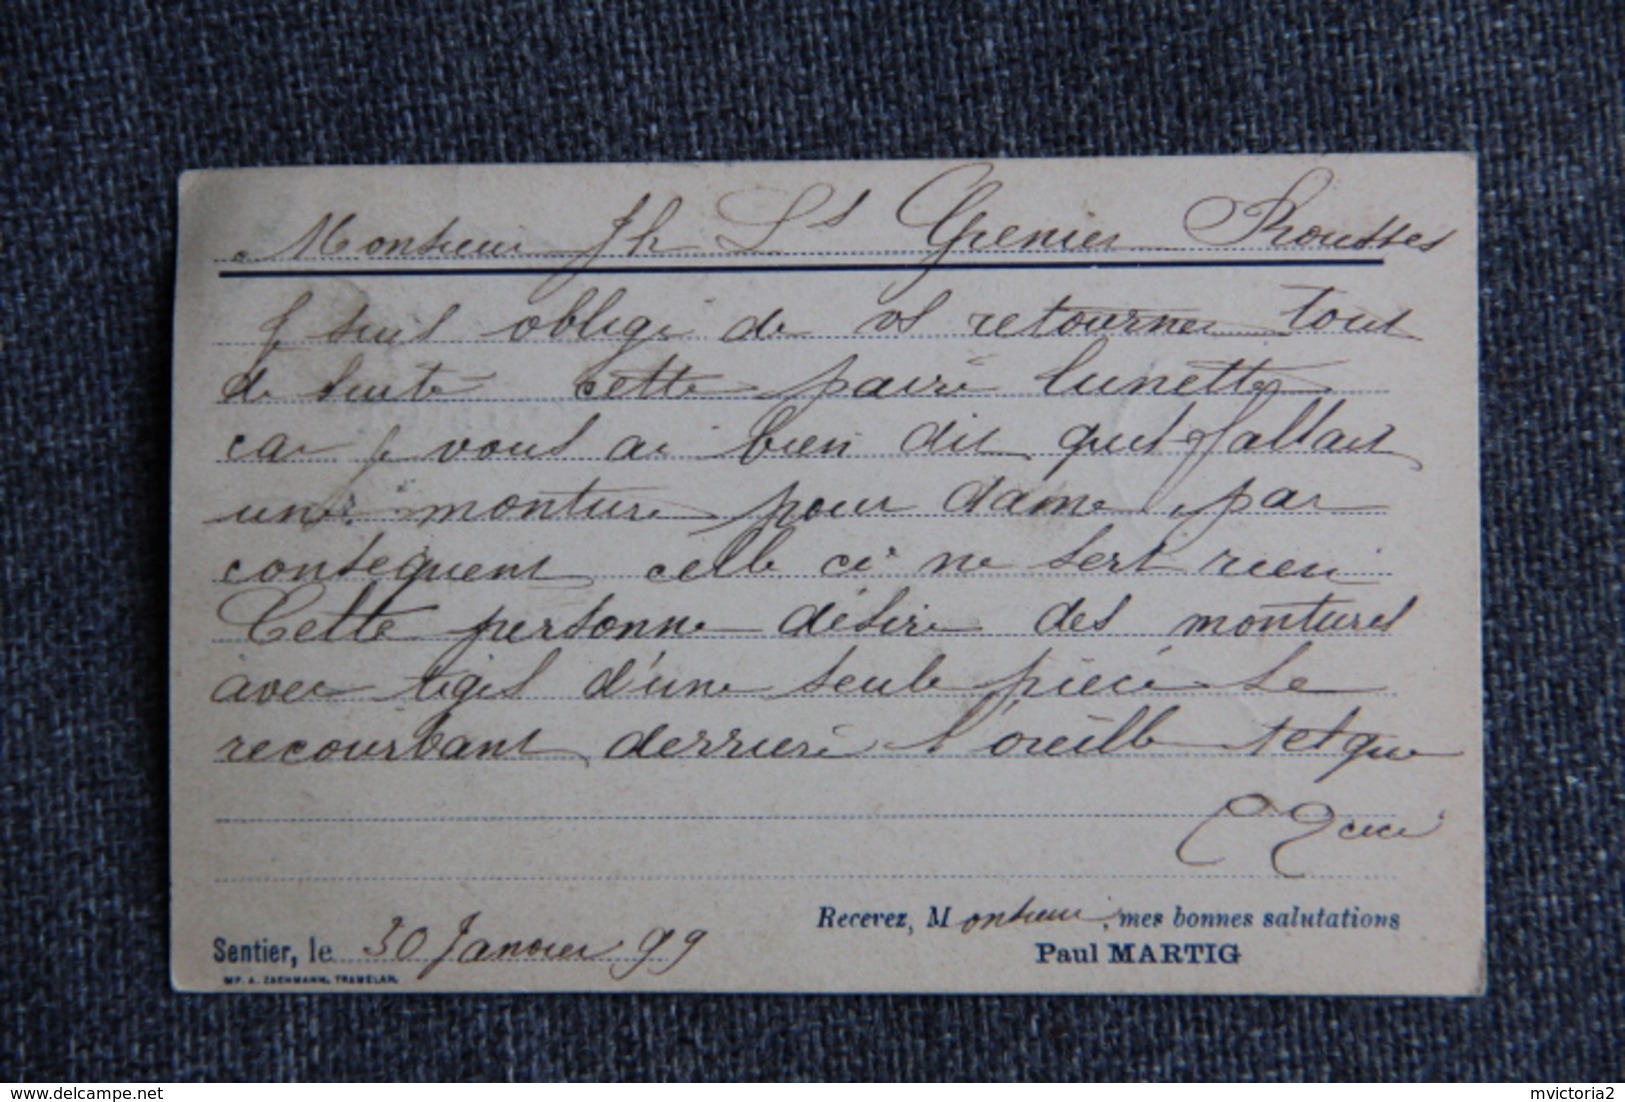 Monsieur Jh Ls Grenier Rousses
Je suis obligé de vs retourner tout
de suite cette paire lunettes
car je vous ai bien dit qu'il fallait
une monture pour dame, par
conséquent celle ci ne sert rien
Cette personne désire des montures
avec tiges d'une seule pièce se
recourbant derrière l'oreille tel que
ceci
Recevez, Monsieur, mes bonnes salutations
Sentier, le 30 Janvier 99
Paul MARTIG
IMP. A. ZACHMANN, TRAMELAN.
delcampe.net
mvictoria2